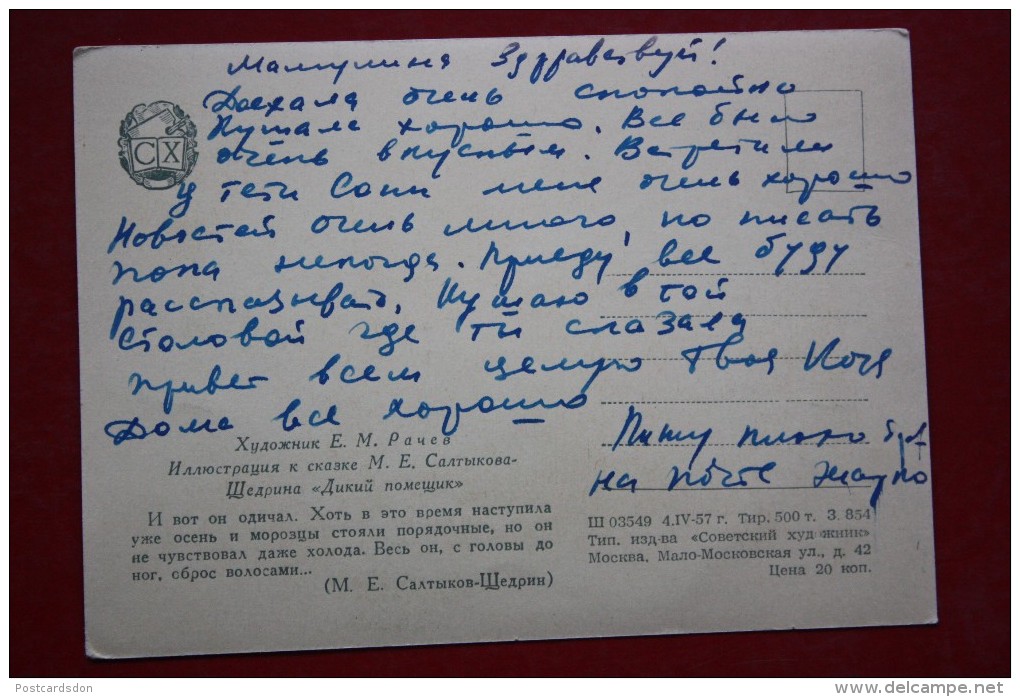 Мамулина Здравствуй!
Доехала очень спокойно
Кушала хорошо. Все было
очень вкусным. Встретили
у тети Сони меня очень хорошо
Новостей очень много, но писать
пока некогда. Приеду, все буду
рассказывать, Кушаю в той
столовой где ты сказала
привет всем целую Твоя
Дома все хорошо
Пишу плохо
на почте
СХ
Художник Е. М. Рачев
Иллюстрация к сказке М. Е. Салтыкова-
Щедрина «Дикий помещик»
И вот он одичал. Хоть в это время наступила
уже осень и морозцы стояли порядочные, но он
не чувствовал даже холода. Весь он, с головы до
ног, оброс волосами...
(М. Е. Салтыков-Щедрин)
Ш 03549 4.IV-57 г. Тир. 500 т. З. 854
Тип. изд-ва «Советский художник»
Москва, Мало-Московская ул., д. 42
Цена 20 коп.
Postcardsdon
www.delcampe.net